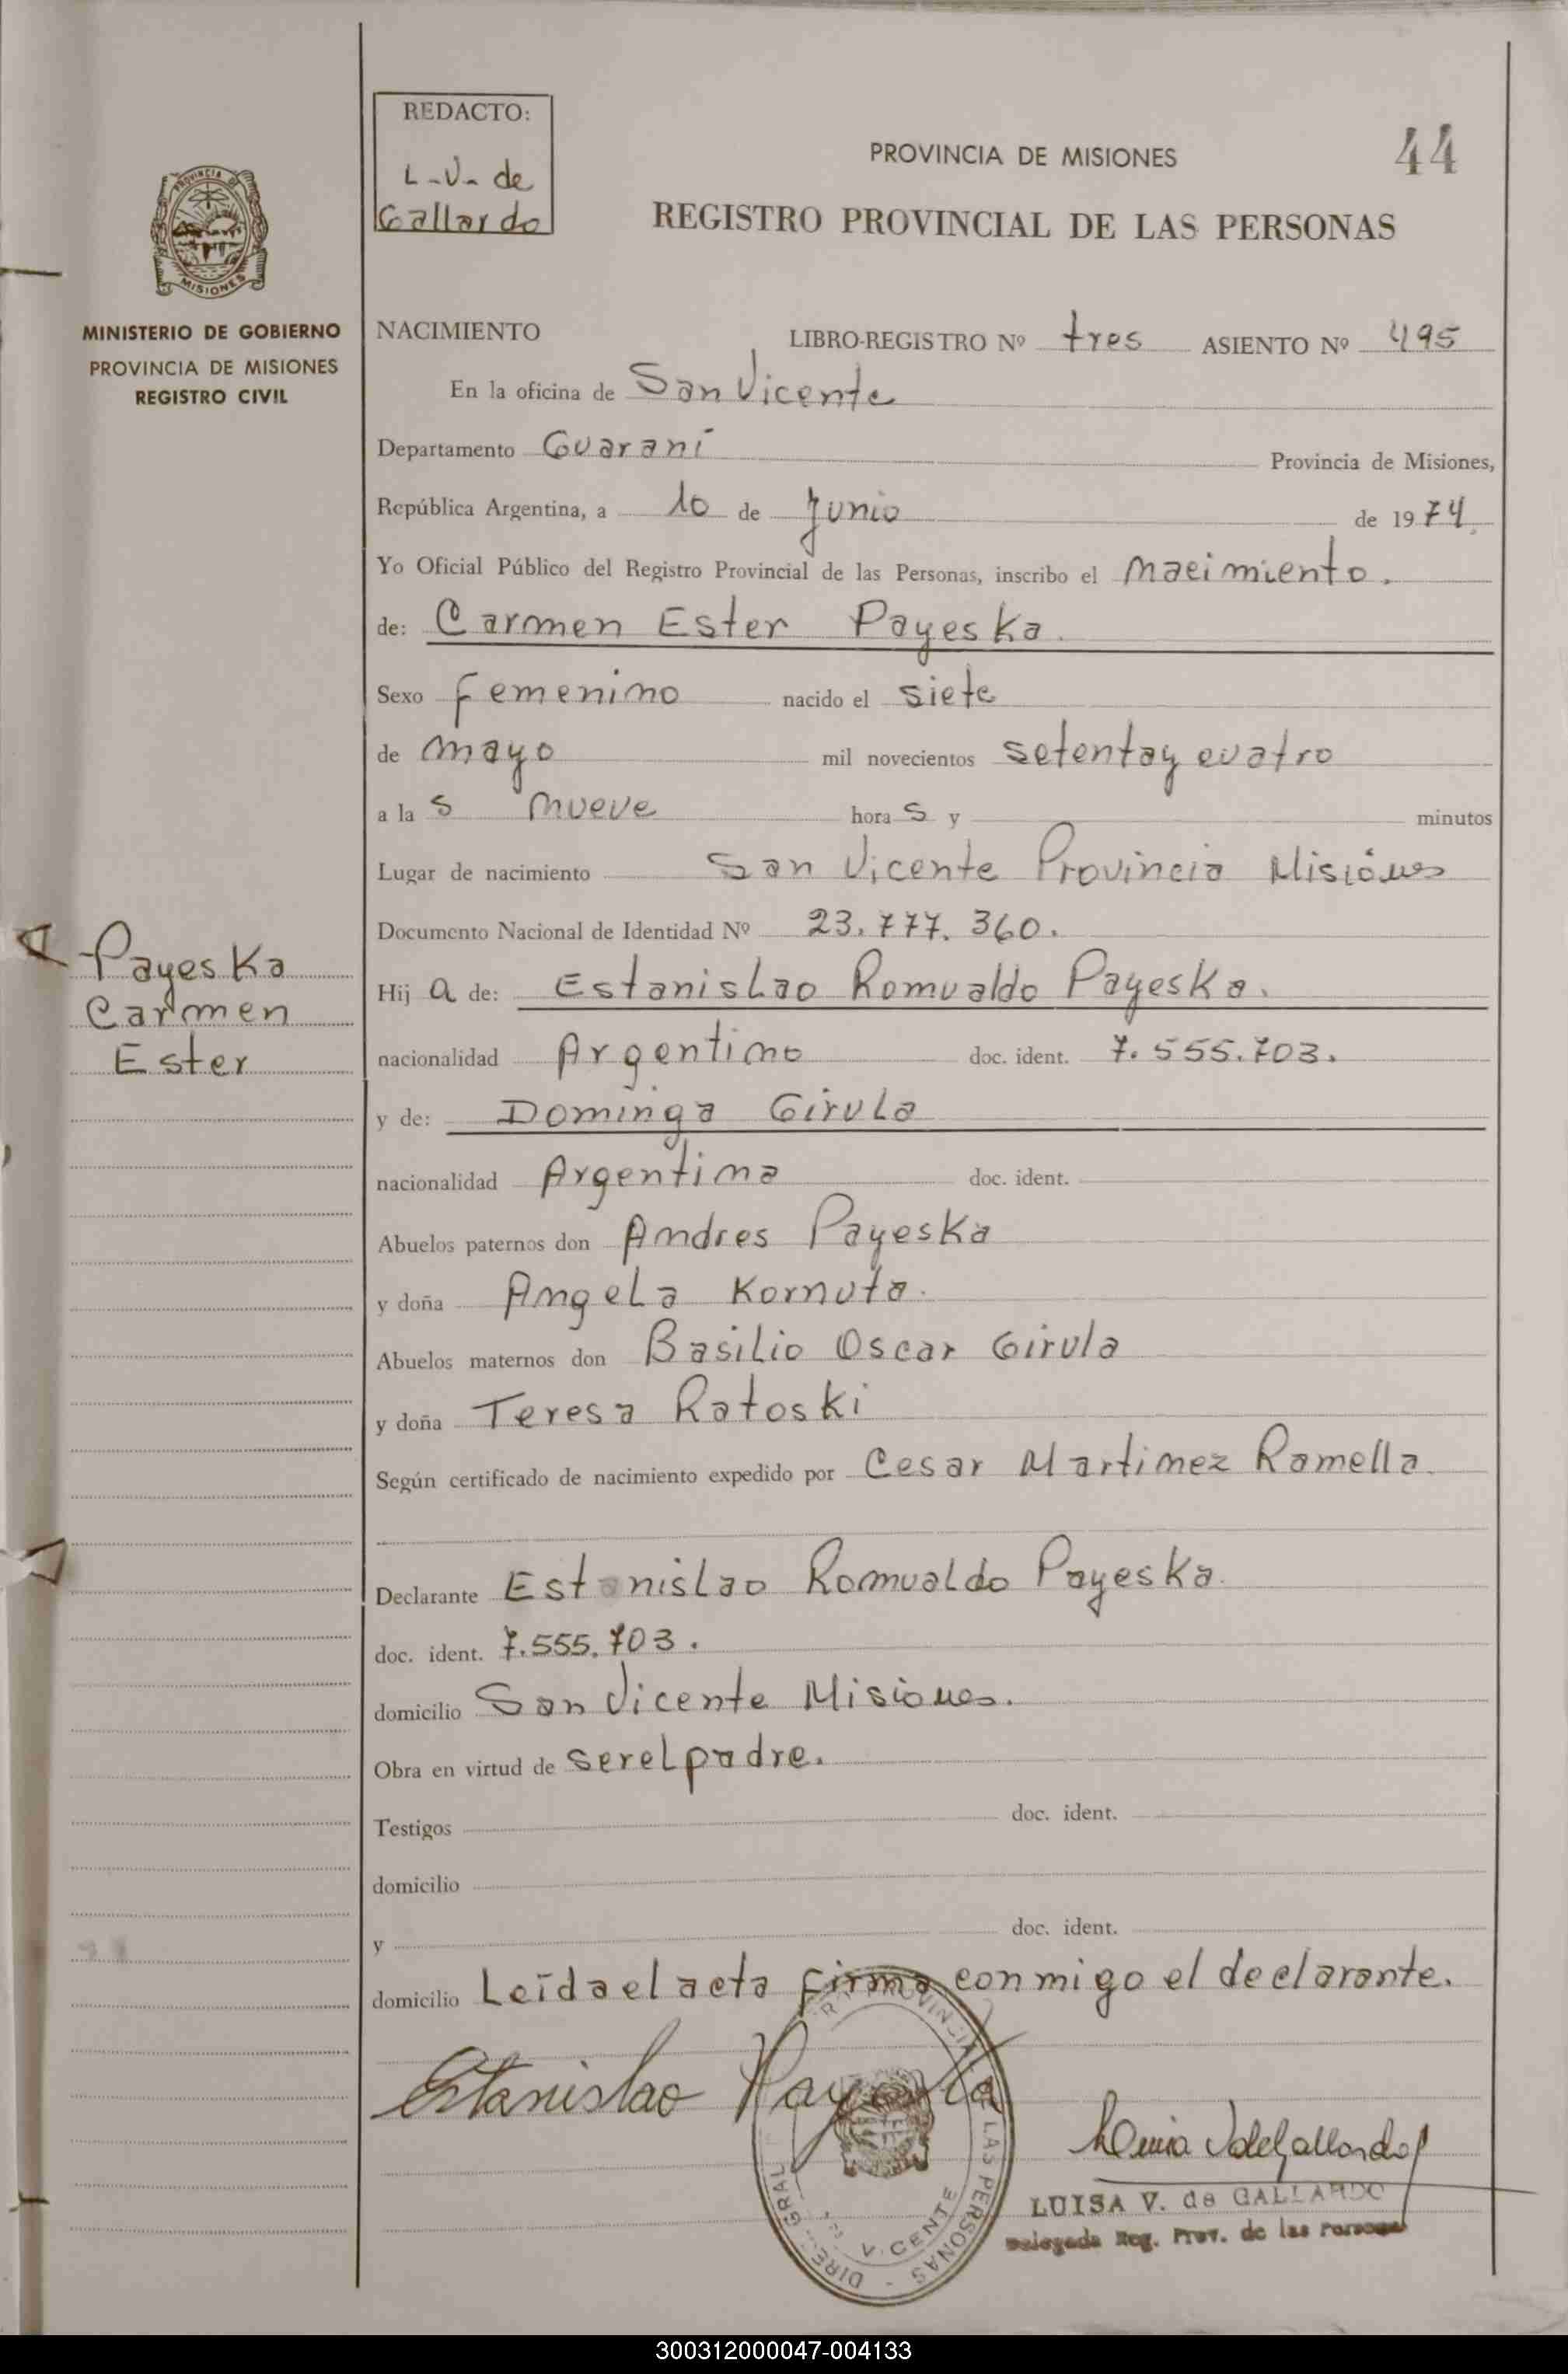 REDACTO:
L.V. de
Gallardo
PROVINCIA DE MISIONES
44
REGISTRO PROVINCIAL DE LAS PERSONAS
PROVINCIA DE
MISIONES
MINISTERIO DE GOBIERNO
PROVINCIA DE MISIONES
REGISTRO CIVIL
NACIMIENTO LIBRO-REGISTRO Nº tres ASIENTO Nº 495
En la oficina de San Vicente
Departamento Guaraní Provincia de Misiones,
República Argentina, a 10 de Junio de 1974.
Yo Oficial Público del Registro Provincial de las Personas, inscribo el nacimiento.
de: Carmen Ester Payeska.
Sexo femenino nacido el siete
de mayo mil novecientos setenta y cuatro
a la s nueve hora s y minutos
Lugar de nacimiento San Vicente Provincia Misiónes
Documento Nacional de Identidad Nº 23.777.360.
Payeska
Carmen
Ester
Hij a de: Estanislao Romualdo Payeska.
nacionalidad Argentino doc. ident. 7.555.703.
y de: Dominga Girula
nacionalidad Argentina doc. ident.
Abuelos paternos don Andres Payeska
y doña Angela Kornuta.
Abuelos maternos don Basilio Oscar Girula
y doña Teresa Ratoski
Según certificado de nacimiento expedido por Cesar Martinez Ramella.
Declarante Estanislao Romualdo Payeska.
doc. ident. 7.555.703.
domicilio San Vicente Misiones.
Obra en virtud de ser el padre.
Testigos doc. ident.
domicilio
y doc. ident.
domicilio Leída el acta firma conmigo el declarante.
Estanislao Payeska
DIRE. GRAL. PROVINCIAL LAS PERSONAS
V. CENTE
Luisa V de Gallardo
LUISA V. de GALLARDO
Delegada Reg. Prov. de las Personas
300312000047-004133